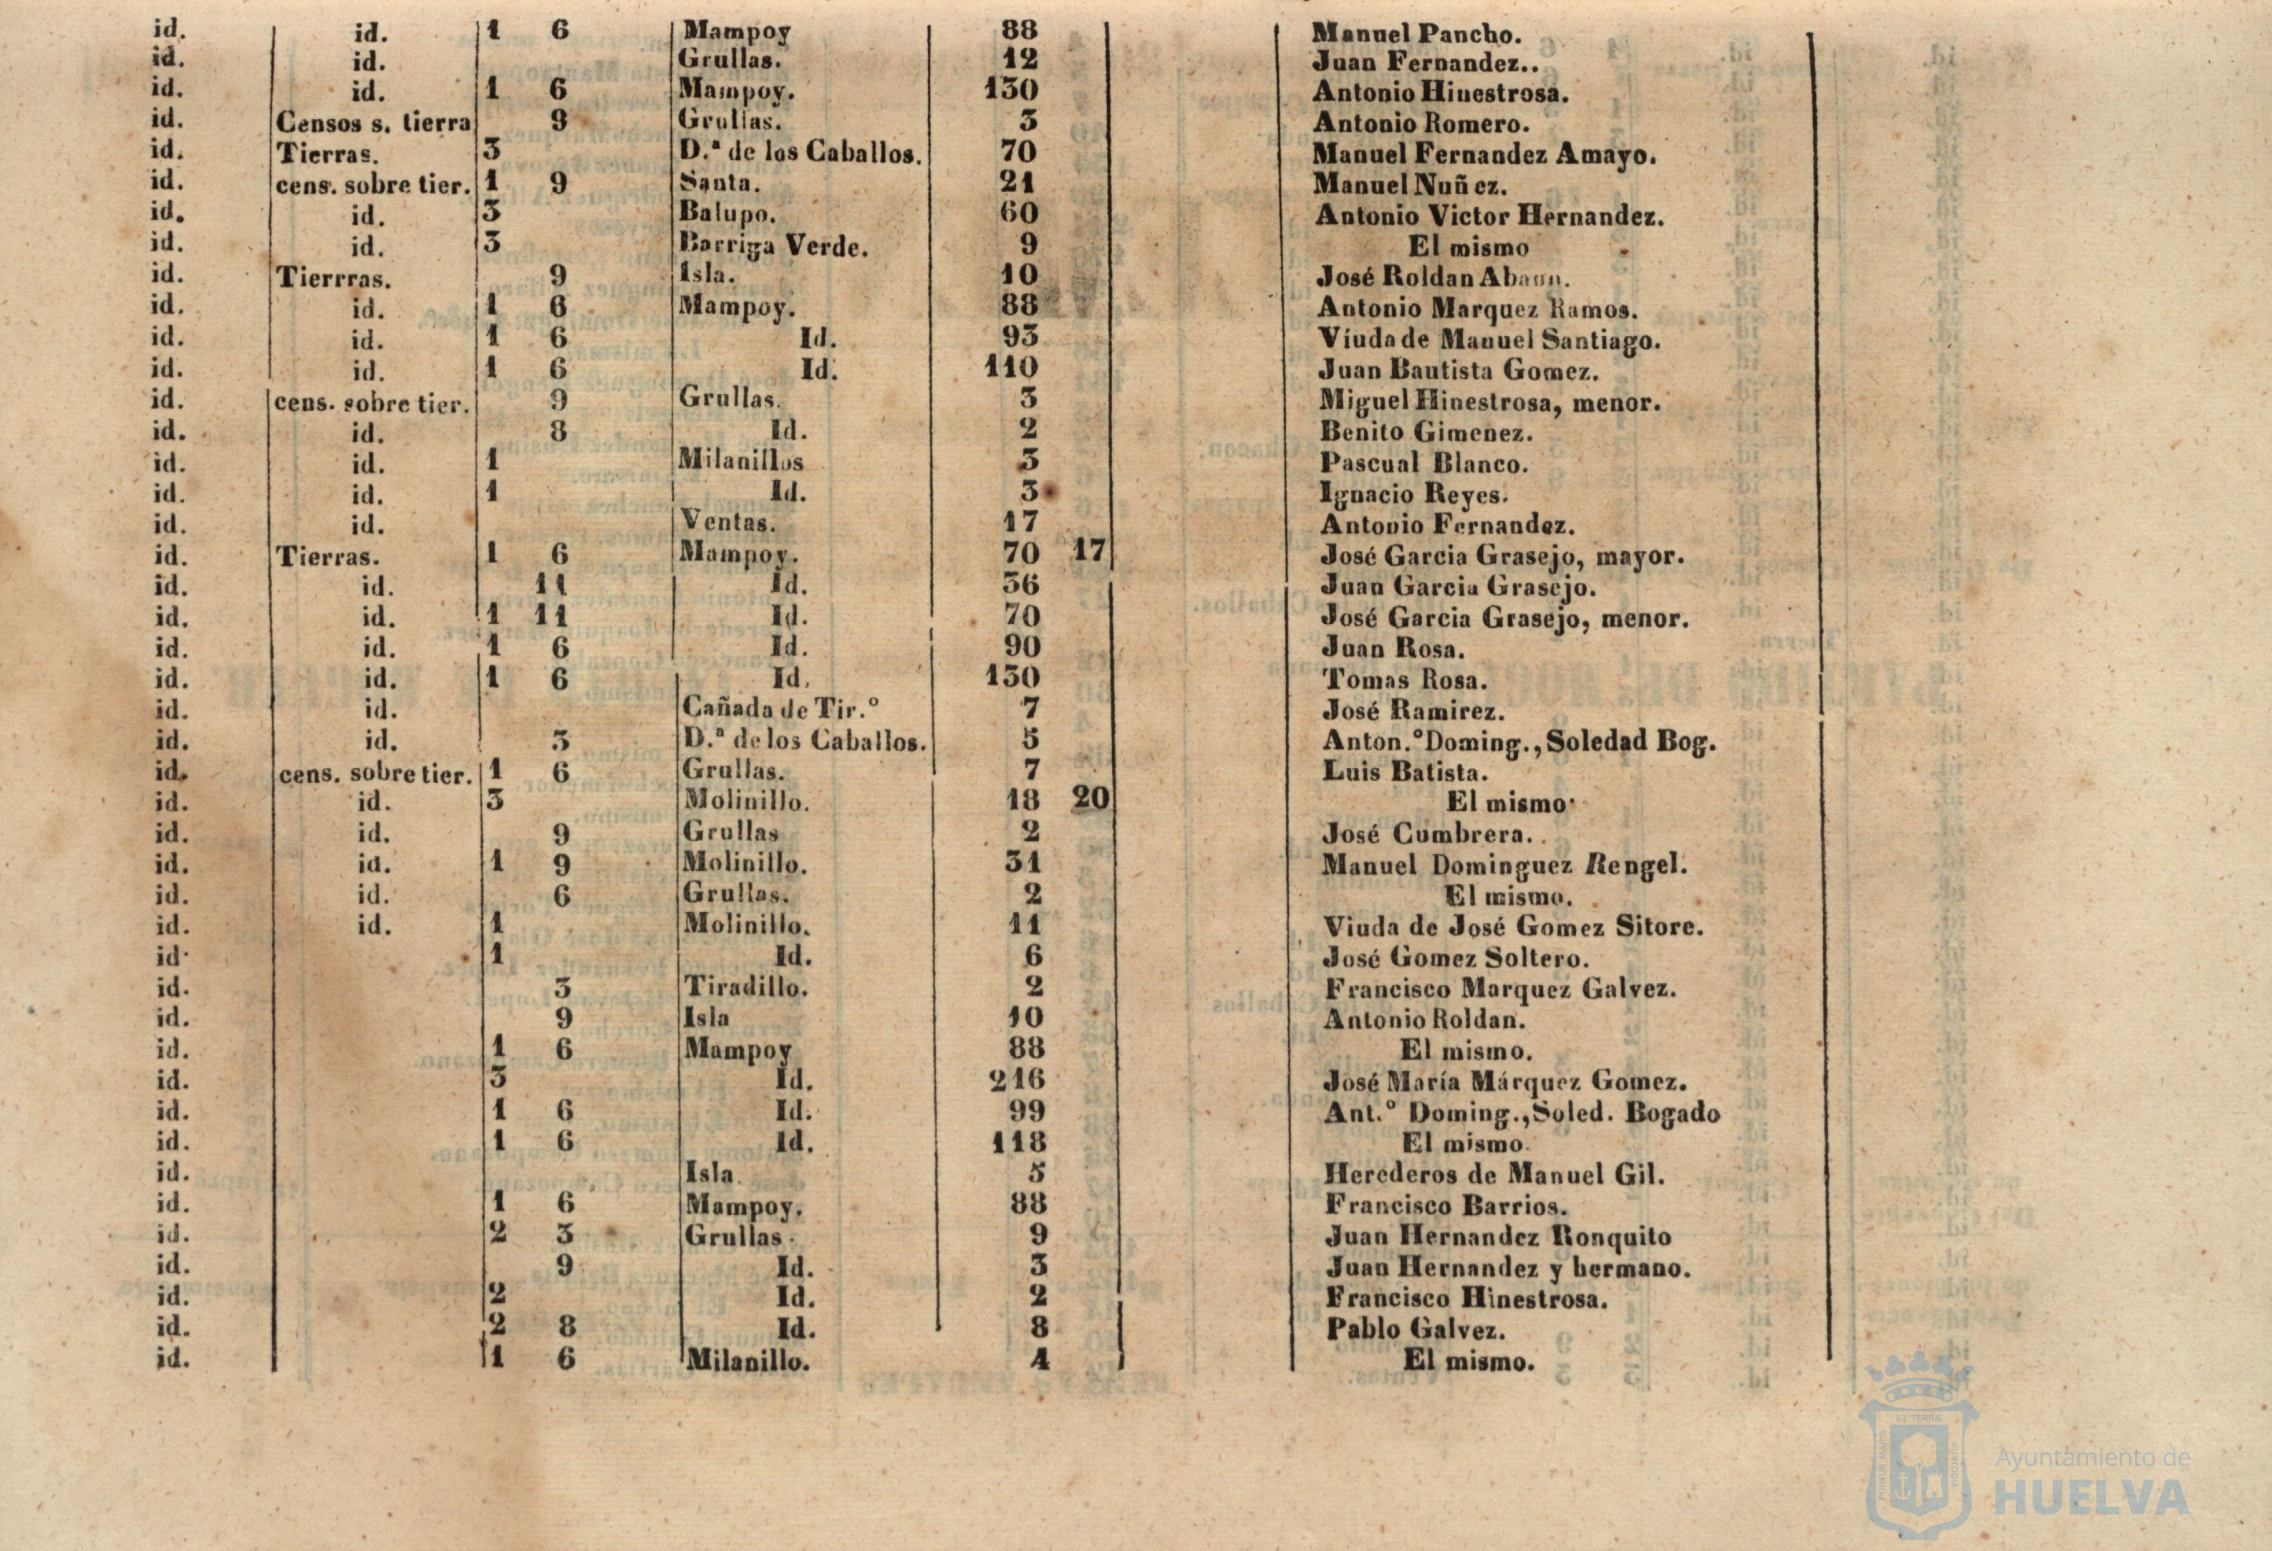 id. id. 1 6 Mampoy 88 Manuel Pancho.
id. id. Grullas. 12 Juan Fernandez..
id. id. 1 6 Mampoy. 130 Antonio Hinestrosa.
id. Censos s. tierra 9 Grullas. 3 Antonio Romero.
id. Tierras. 3 D.ª de los Caballos. 70 Manuel Fernandez Amayo.
id. cens. sobre tier. 1 9 Santa. 21 Manuel Nuñez.
id. id. 3 Balupo. 60 Antonio Victor Hernandez.
id. id. 3 Barriga Verde. 9 El mismo
id. Tierrras. 9 Isla. 10 José Roldan
id. id. 1 6 Mampoy. 88 Antonio Marquez Ramos.
id. id. 1 6 Id. 93 Viuda de Manuel Santiago.
id. id. 1 6 Id. 110 Juan Bautista Gomez.
id. cens. sobre tier. 9 Grullas. 3 Miguel Hinestrosa, menor.
id. id. 8 Id. 2 Benito Gimenez.
id. id. 1 Milanillos 3 Pascual Blanco.
id. id. 1 Id. 3 Ignacio Reyes.
id. id. Ventas. 17 Antonio Fernandez.
id. Tierras. 1 6 Mampoy. 70 17 José Garcia Grasejo, mayor.
id. id. 11 Id. 36 Juan Garcia Grasejo.
id. id. 1 11 Id. 70 José Garcia Grasejo, menor.
id. id. 1 6 Id. 90 Juan Rosa.
id. id. 1 6 Id. 130 Tomas Rosa.
id. id. Cañada de Tir.º 7 José Ramirez.
id. id. 3 D.ª de los Caballos. 5 Anton.º Doming., Soledad Bog.
id. cens. sobre tier. 1 6 Grullas. 7 Luis Batista.
id. id. 3 Molinillo. 18 20 El mismo
id. id. 9 Grullas 2 José Cumbrera.
id. id. 1 9 Molinillo. 31 Manuel Dominguez Rengel.
id. id. 6 Grullas. 2 El mismo.
id. id. 1 Molinillo. 11 Viuda de José Gomez Sitore.
id. 1 Id. 6 José Gomez Soltero.
id. 3 Tiradillo. 2 Francisco Marquez Galvez.
id. 9 Isla 10 Antonio Roldan.
id. 1 6 Mampoy 88 El mismo.
id. 3 Id. 216 José María Márquez Gomez.
id. 1 6 Id. 99 Ant.º Doming., Soled. Bogado
id. 1 6 Id. 118 El mismo.
id. Isla. 5 Herederos de Manuel Gil.
id. 1 6 Mampoy. 88 Francisco Barrios.
id. 2 3 Grullas. 9 Juan Hernandez Ronquito
id. 9 Id. 3 Juan Hernandez y hermano.
id. 2 Id. 2 Francisco Hinestrosa.
id. 2 8 Id. 8 Pablo Galvez.
id. 1 6 Milanillo. 4 El mismo.
Ayuntamiento de
HUELVA